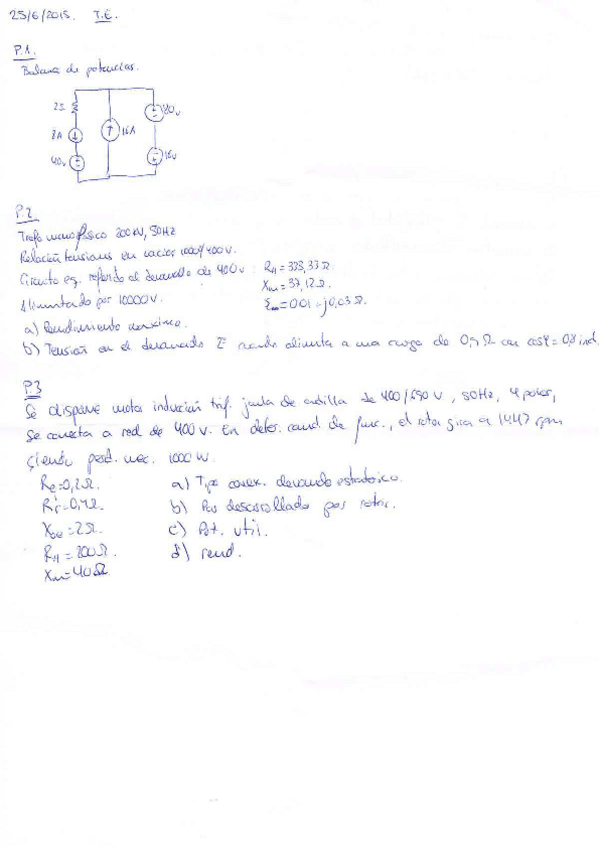 25/6/2015. T.E.
P.1.
Balance de potencias.
2Ω
8A
16A
40v
80v
16v
P.2
Trafo monofásico 200kV, 50Hz
Relación tensiones en vacío: 10000/400v.
Circuito eq. referido al devanado de 400v: RH = 333,33Ω
Xm = 37,12Ω
Alimentado por 10000v.
= 0'01 + j0,03Ω.
a) Rendimiento máximo.
b) Tensión en el devanado 2º cuando alimenta a una carga de Ω con cosφ = 0,8 ind.
P3
Se dispone motor inducción trif. jaula de ardilla de 400/690v, 50Hz, 4 polos,
Se conecta a red de 400v. En deter. cond. de func., el rotor gira a 1447 rpm
siendo perd. mec. 1000W.
Re=0,2Ω.
a) Tipo conex. devanado estatórico.
Rr'=0,4Ω.
b) Par desarrollado por rotor.
Xcc=2Ω.
c) Pot. util.
RH=200Ω.
d) rend.
Xm=40Ω